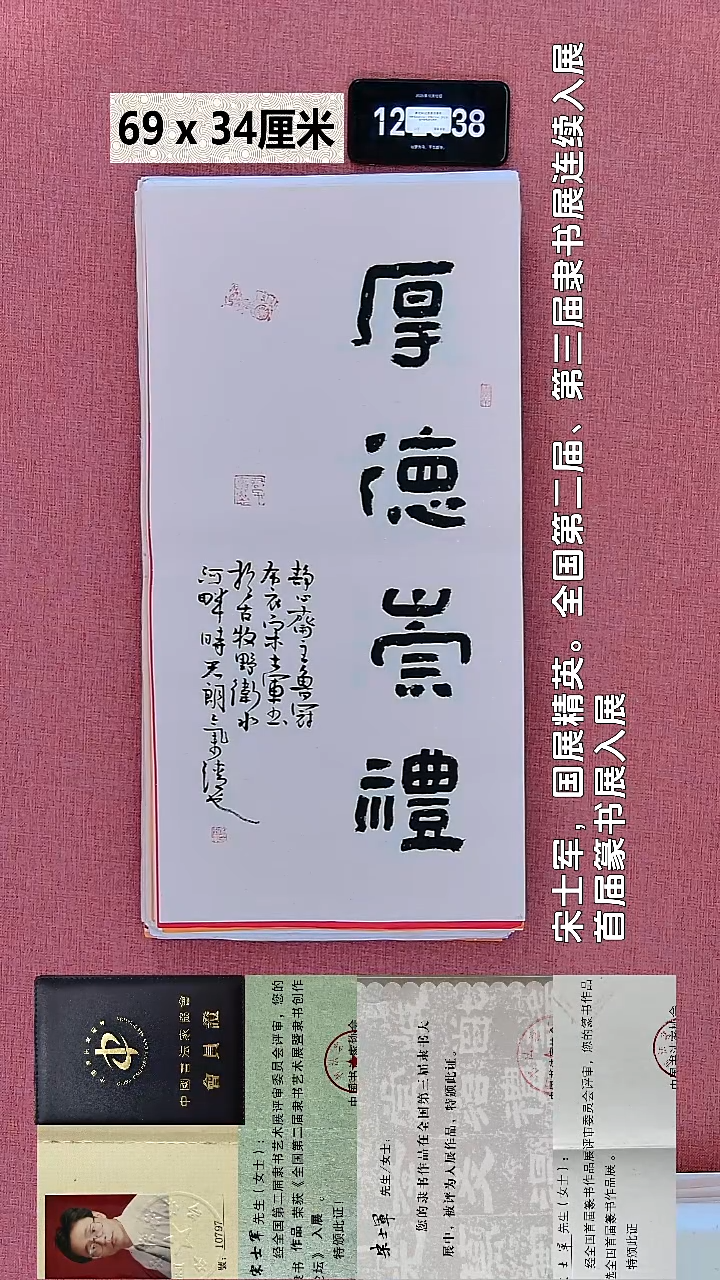 69 x 34厘米
宋士军，国展精英。全国第二届、第三届隶书展连续入展
首届篆书展入展
厚德崇禮
静心齋主魯冠
布衣宋士軍書
於古牧野衛水
河畔時天朗氣清也
中國書法家協會
會員證
號：10797
宋士军 先生（女士）：
经全国第二届隶书艺术展评审委员会评审，您的
隶书 作品 荣获《全国第二届隶书艺术展暨隶书创作
论坛》 入展 。
特颁此证！
宋士軍 先生/女士：
您的隶书作品在全国第三届隶书大
展中，被评为入展作品，特颁此证。
士军 先生（女士）：
经全国首届篆书作品展评审委员会评审，您的篆书作品
选全国首届篆书作品展。
特颁此证